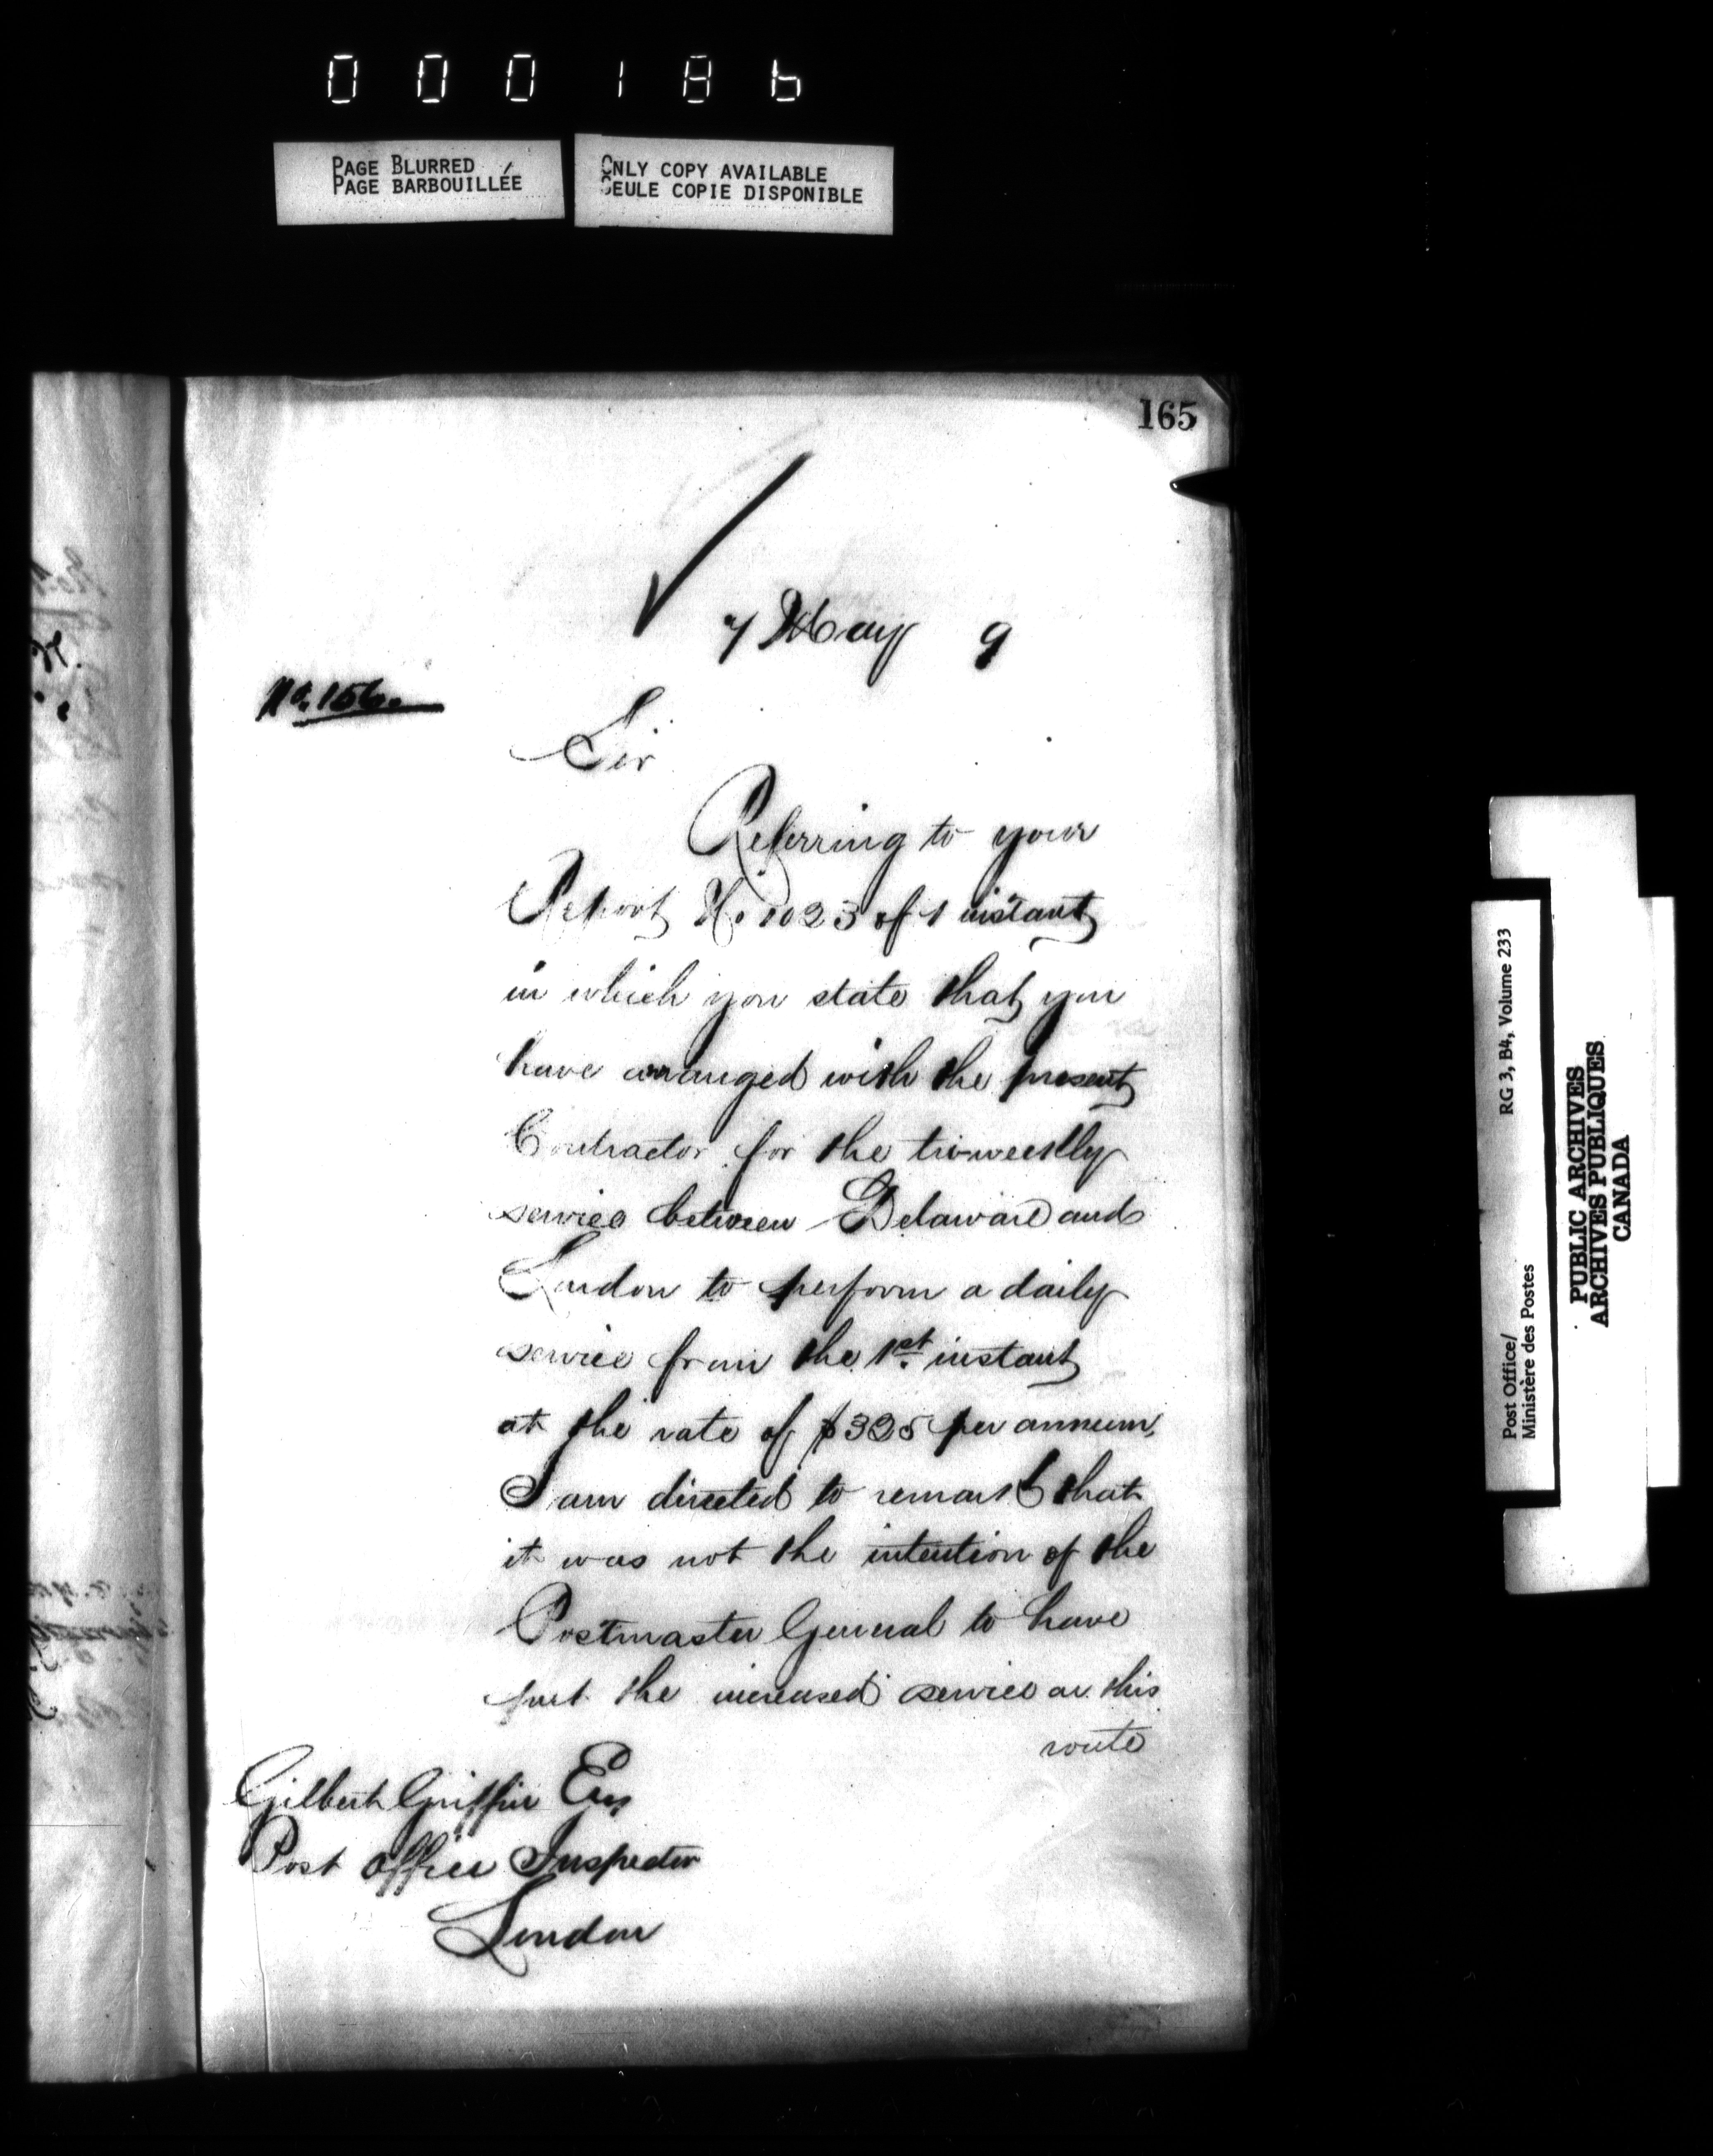 000186
PAGE BLURRED
PAGE BARBOUILLÉE
ONLY COPY AVAILABLE
SEULE COPIE DISPONIBLE
165
7 May 9
No. 156.
Sir
Referring to your
Report No 1023 of 1 instant
in which you state that you
have arranged with the present
Contractor for the tri-weekly
service between Delaware and
London to perform a daily
service from the 1st. instant
at the rate of $325 per annum,
I am directed to remark that
it was not the intention of the
Postmaster General to have
put the increased service on this
route
Gilbert Griffin Esq
Post Office Inspector
London
Post Office/
Ministère des Postes
RG 3, B4, Volume 233
PUBLIC ARCHIVES
ARCHIVES PUBLIQUES
CANADA